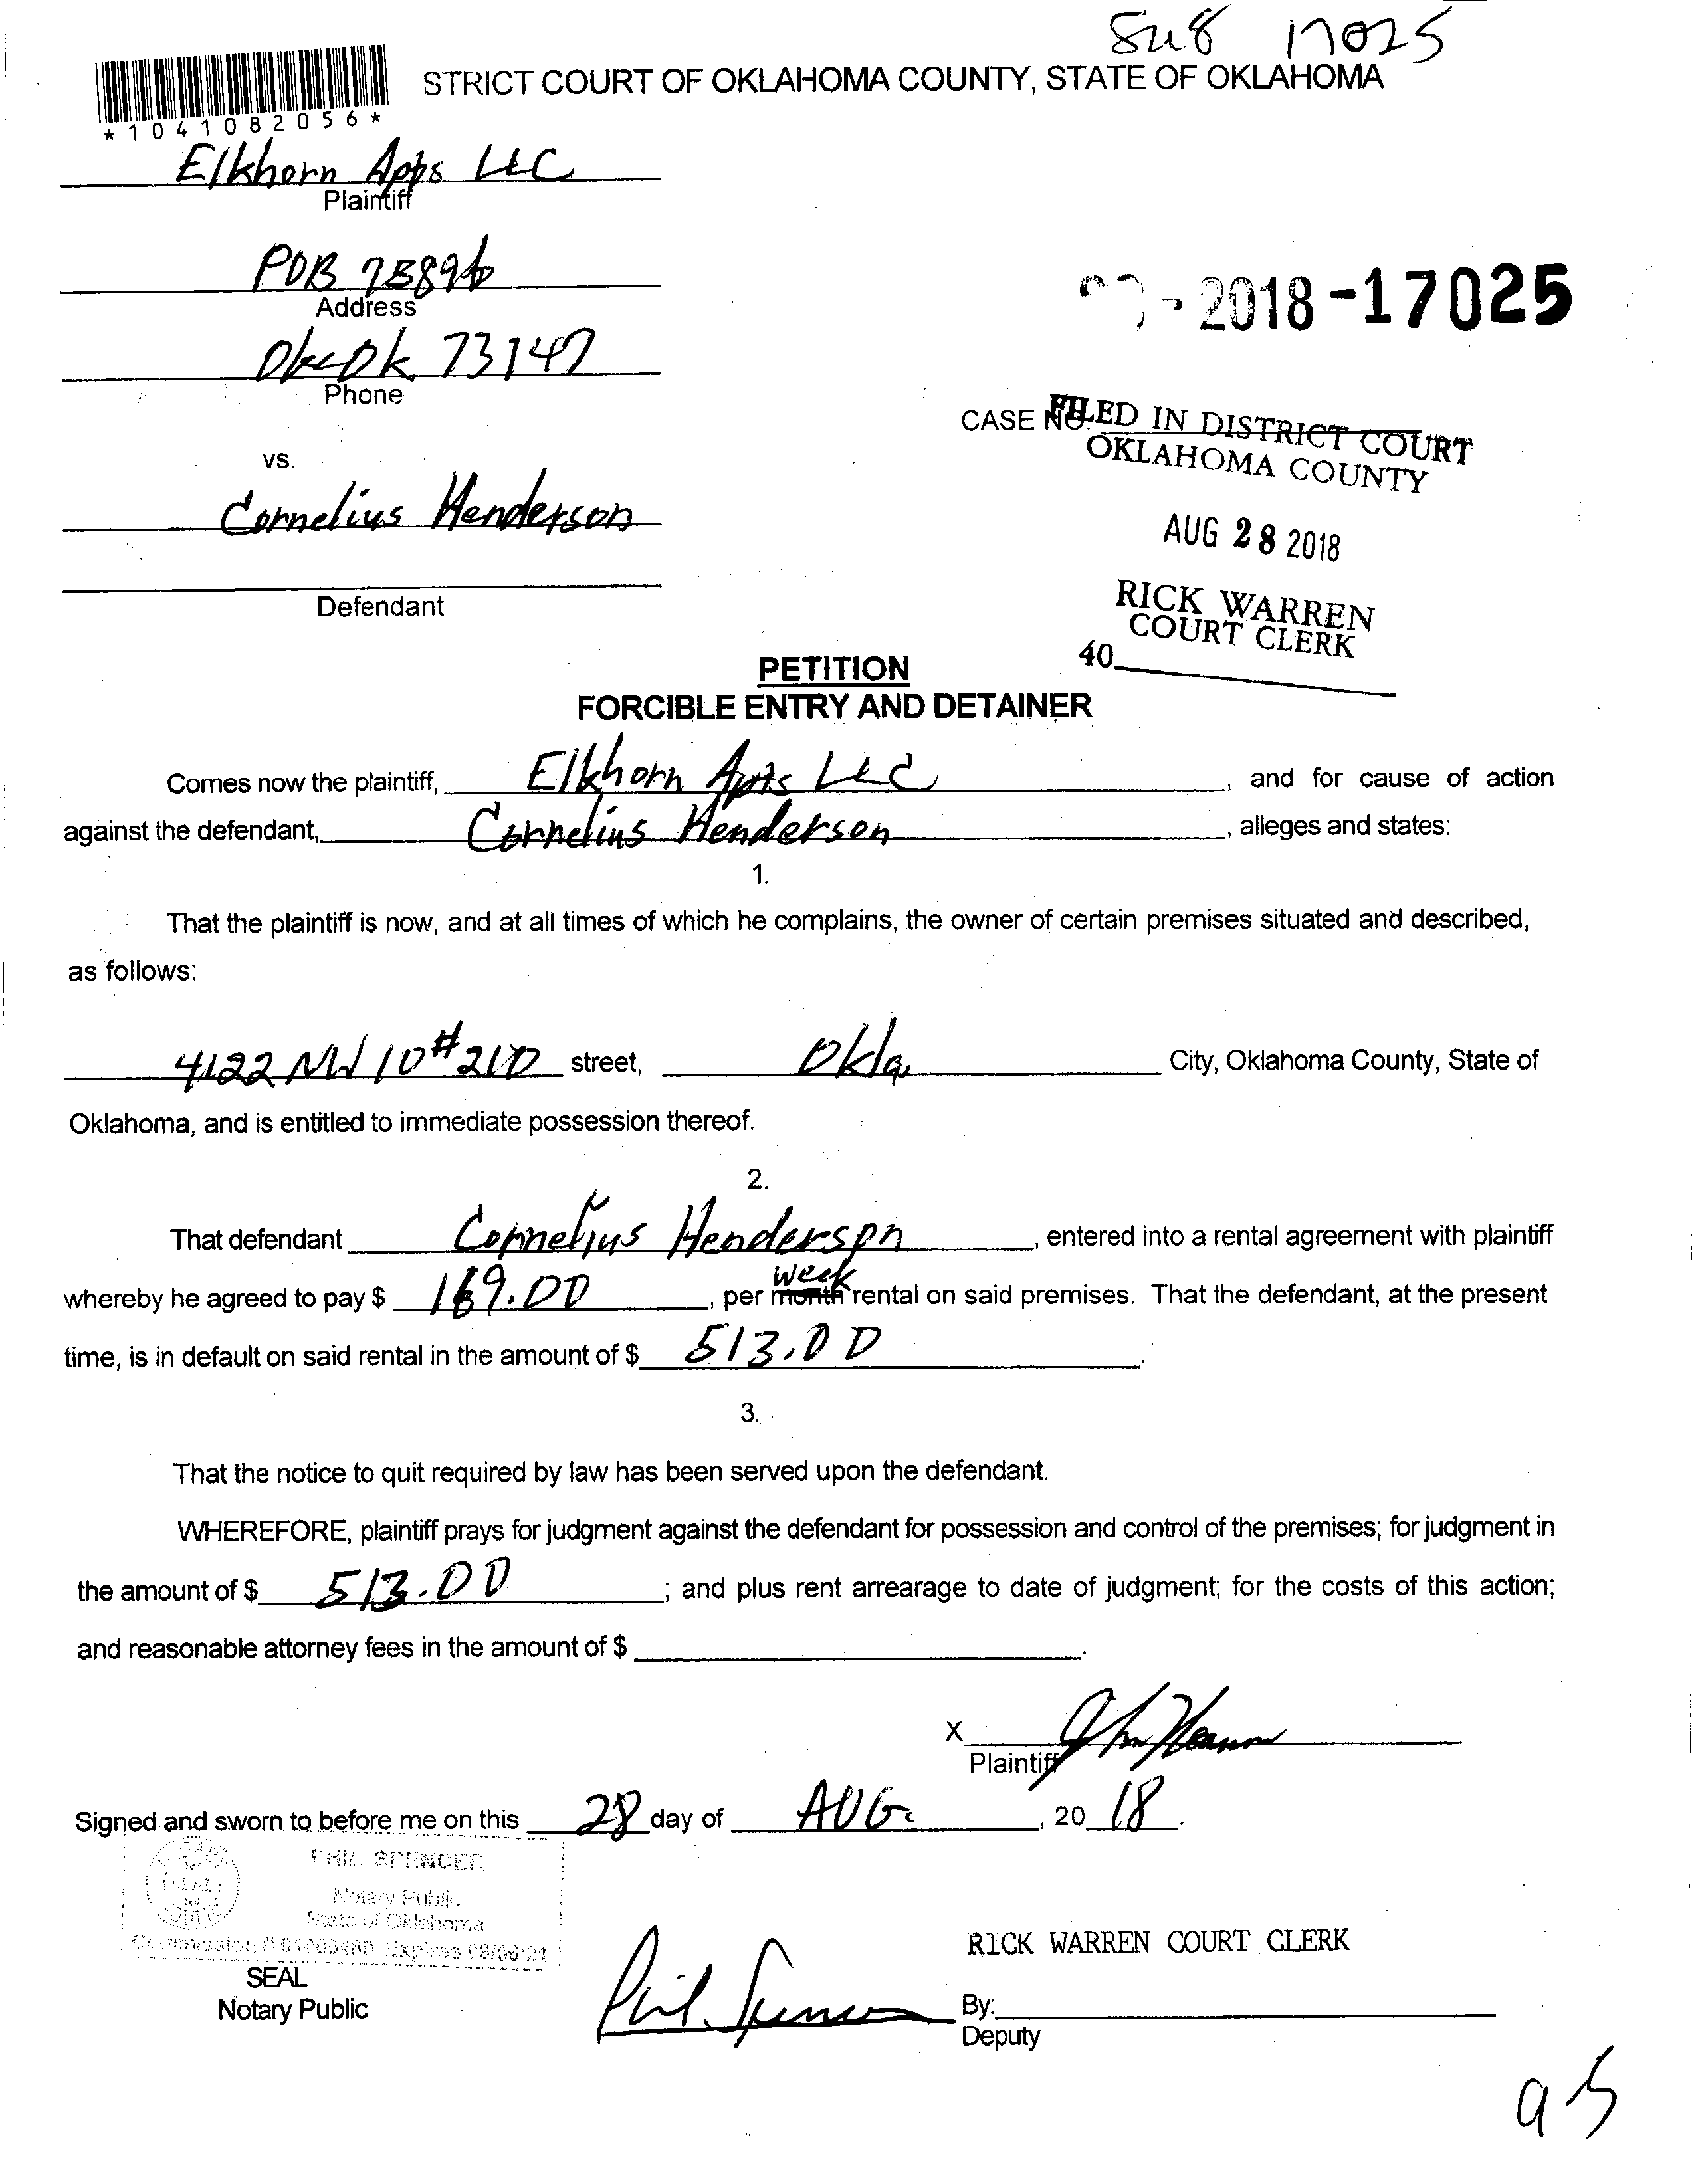 Su8 17025
STRICT COURT OF OKLAHOMA COUNTY, STATE OF OKLAHOMA
*1041082056*
Elkhorn Apts LLC
Plaintiff
POB 75896
Address
- 2018 -17025
Okc Ok 73147
Phone
CASE NO.
FILED IN DISTRICT COURT
OKLAHOMA COUNTY
vs.
Cornelius Henderson
AUG 28 2018
Defendant
RICK WARREN
COURT CLERK
40
PETITION
FORCIBLE ENTRY AND DETAINER
Comes now the plaintiff, Elkhorn Apts LLC, and for cause of action
against the defendant, Cornelius Henderson, alleges and states:
1.
That the plaintiff is now, and at all times of which he complains, the owner of certain premises situated and described,
as follows:
4122 NW 10 #210 street, Okla. City, Oklahoma County, State of
Oklahoma, and is entitled to immediate possession thereof.
2.
That defendant Cornelius Henderson, entered into a rental agreement with plaintiff
whereby he agreed to pay $ 169.00, per month week rental on said premises. That the defendant, at the present
time, is in default on said rental in the amount of $ 513.00.
3.
That the notice to quit required by law has been served upon the defendant.
WHEREFORE, plaintiff prays for judgment against the defendant for possession and control of the premises; for judgment in
the amount of $ 513.00; and plus rent arrearage to date of judgment; for the costs of this action;
and reasonable attorney fees in the amount of $.
X
Plaintiff
Signed and sworn to before me on this 28 day of AUG, 20 18.
PHIL SPENCER
Notary Public
State of Oklahoma
SEAL
Notary Public
Phil Spencer
RICK WARREN COURT CLERK
By:
Deputy